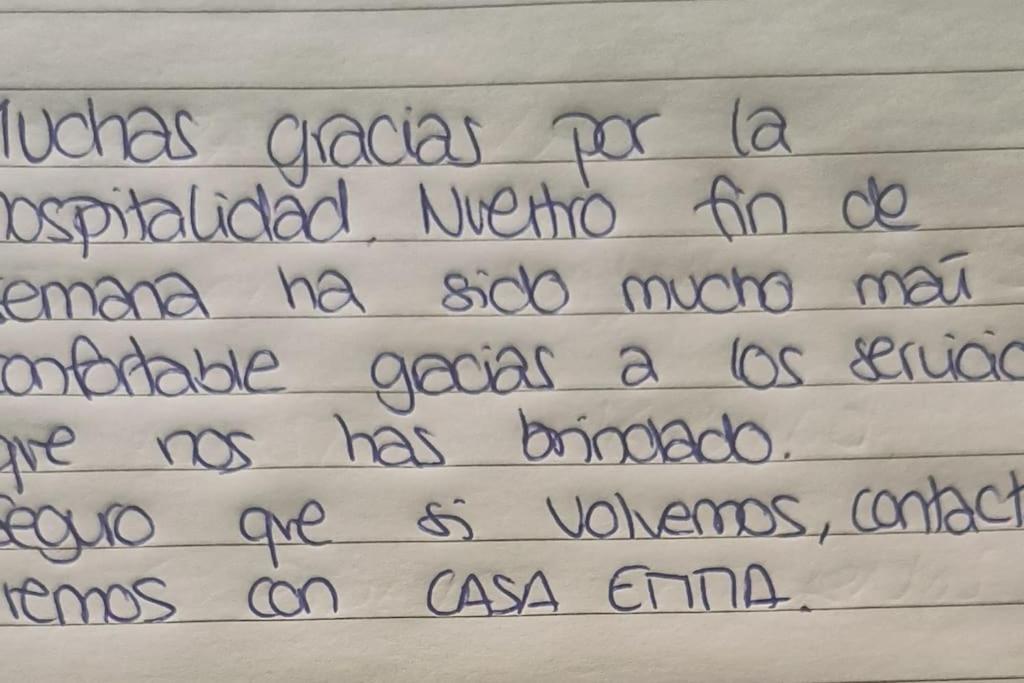 Muchas gracias por la
hospitalidad. Nuestro fin de
semana ha sido mucho más
confortable gracias a los servicio
que nos has brindado.
Seguro que si volvemos, contact
remos con CASA EMMA.